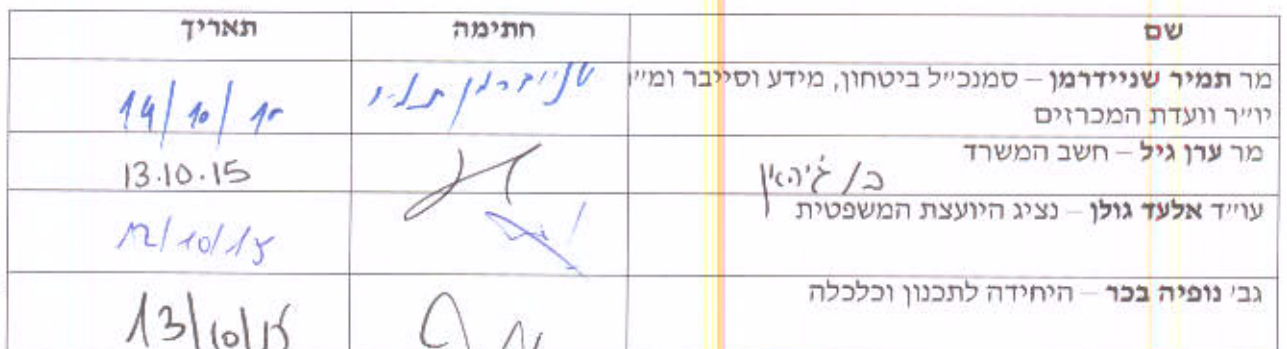 שם חתימה תאריך
מר תמיר שניידרמן – סמנכ״ל ביטחון, מידע וסייבר ומ״מ שניידרמן תמיר 14/10/15
יו״ר וועדת המכרזים
מר ערן גיל – חשב המשרד 13.10.15
עו״ד אלעד גולן – נציג היועצת המשפטית 12/10/15
גב׳ נופיה בכר – היחידה לתכנון וכלכלה 13/10/15